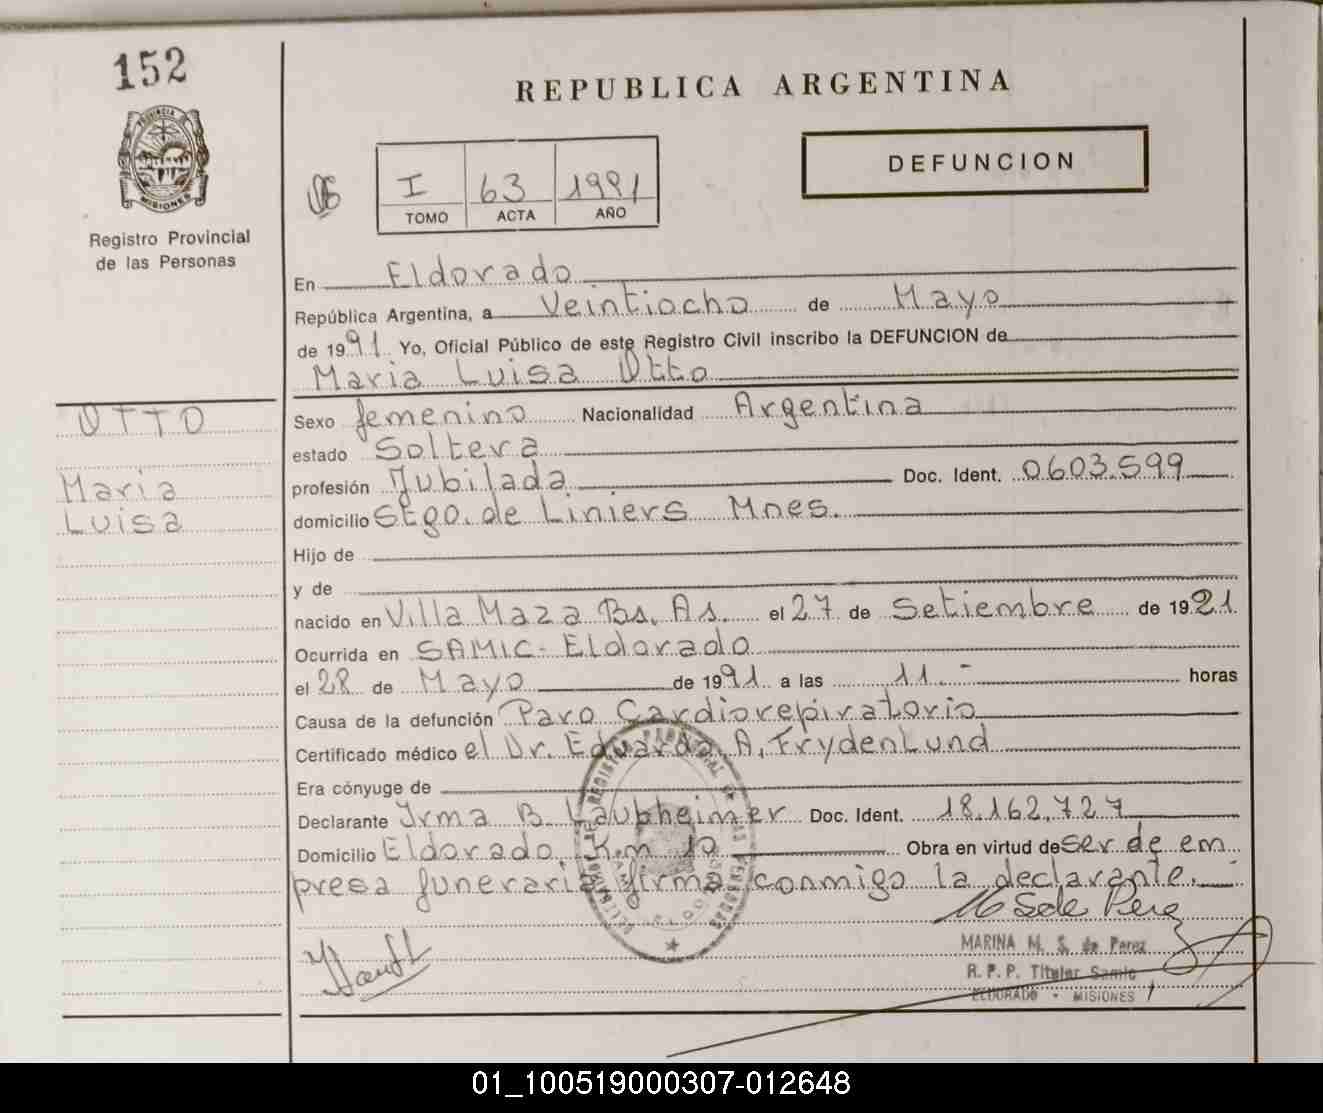 152
REPUBLICA ARGENTINA
PROVINCIA
MISIONES
Registro Provincial
de las Personas
I 63 1991
TOMO ACTA AÑO
DEFUNCION
En Eldorado
República Argentina, a Veintiocho de Mayo
de 1991 Yo, Oficial Público de este Registro Civil inscribo la DEFUNCION de
Maria Luisa Otto
OTTO
Maria
Luisa
Sexo femenino Nacionalidad Argentina
estado Soltera
profesión Jubilada Doc. Ident. 0603.599
domicilio Stgo. de Liniers Mnes.
Hijo de
y de
nacido en Villa Maza Bs. As. el 27 de Setiembre de 1921
Ocurrida en SAMIC- Eldorado
el 28 de Mayo de 1991 a las 11.- horas
Causa de la defunción Paro Cardiorepiratorio
Certificado médico el Dr. Eduardo A. Frydenlund
Era cónyuge de
Declarante Irma B. Laubheimer Doc. Ident. 18.162.727
Domicilio Eldorado Km 10 Obra en virtud de ser de em
presa funeraria firma conmigo la declarante.-
MARINA M. S. de Perez
R. P. P. Titular Samic
ELDORADO - MISIONES
01_100519000307-012648